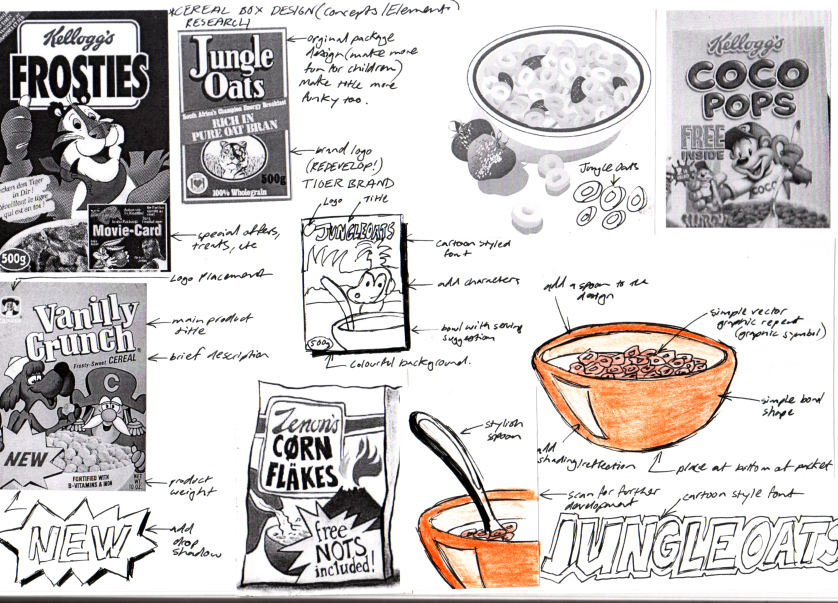 *CEREAL BOX DESIGN (Concepts/Elements)
RESEARCH
Kellogg's
FROSTIES
in Dir!
qui est en toi!
Movie-Card
500g
Jungle
Oats
South Africa's Champion Energy Breakfast
RICH IN
PURE OAT BRAN
500g
100% Wholegrain
orginal package
design (make more
fun for children)
make title more
funky too.
brand logo
(REDEVELOP!)
TIGER BRAND
Logo
Title
special offers,
treats, etc
Jungle Oats
Kellogg's
COCO
POPS
FREE
INSIDE
COCO
JUNGLEOATS
500g
cartoon styled
font
add characters
bowl with serving
suggestion
colourful background.
Logo Placement
Vanilly
Crunch
Frosty-Sweet CEREAL
C
NEW
FORTIFIED WITH
B-VITAMINS & IRON
NET
WT.
10 OZ.
main product
title
brief description
product
weight
NEW
add
drop
shadow
Zenon's
CØRN
FLÄKES
free
NOTS
included!
stylish
spoon
add a spoon to the
design
simple vector
graphic repeat
(graphic symbol)
simple bowl
shape
add
shading/reflection
place at bottom of packet
scan for further
development
cartoon style font
JUNGLEOATS